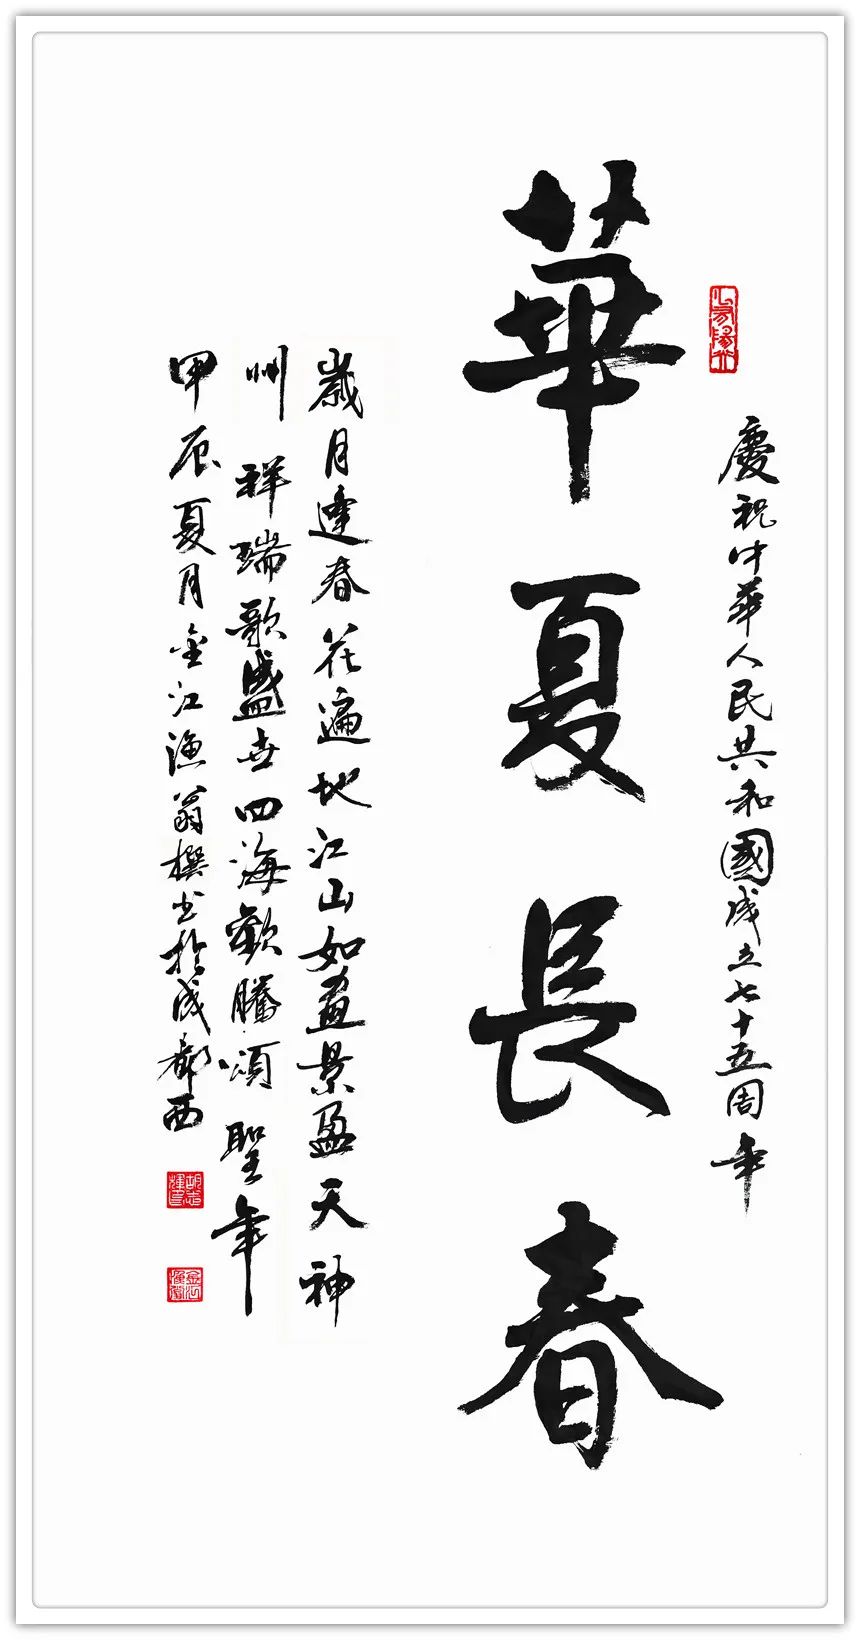 慶祝中華人民共和國成立七十五周年
華夏長春
歲月逢春花遍地江山如畫景盈天神
州祥瑞歌盛世四海歡騰頌聖年
甲辰夏月金江漁翁撰书於成都西
胡志輝印